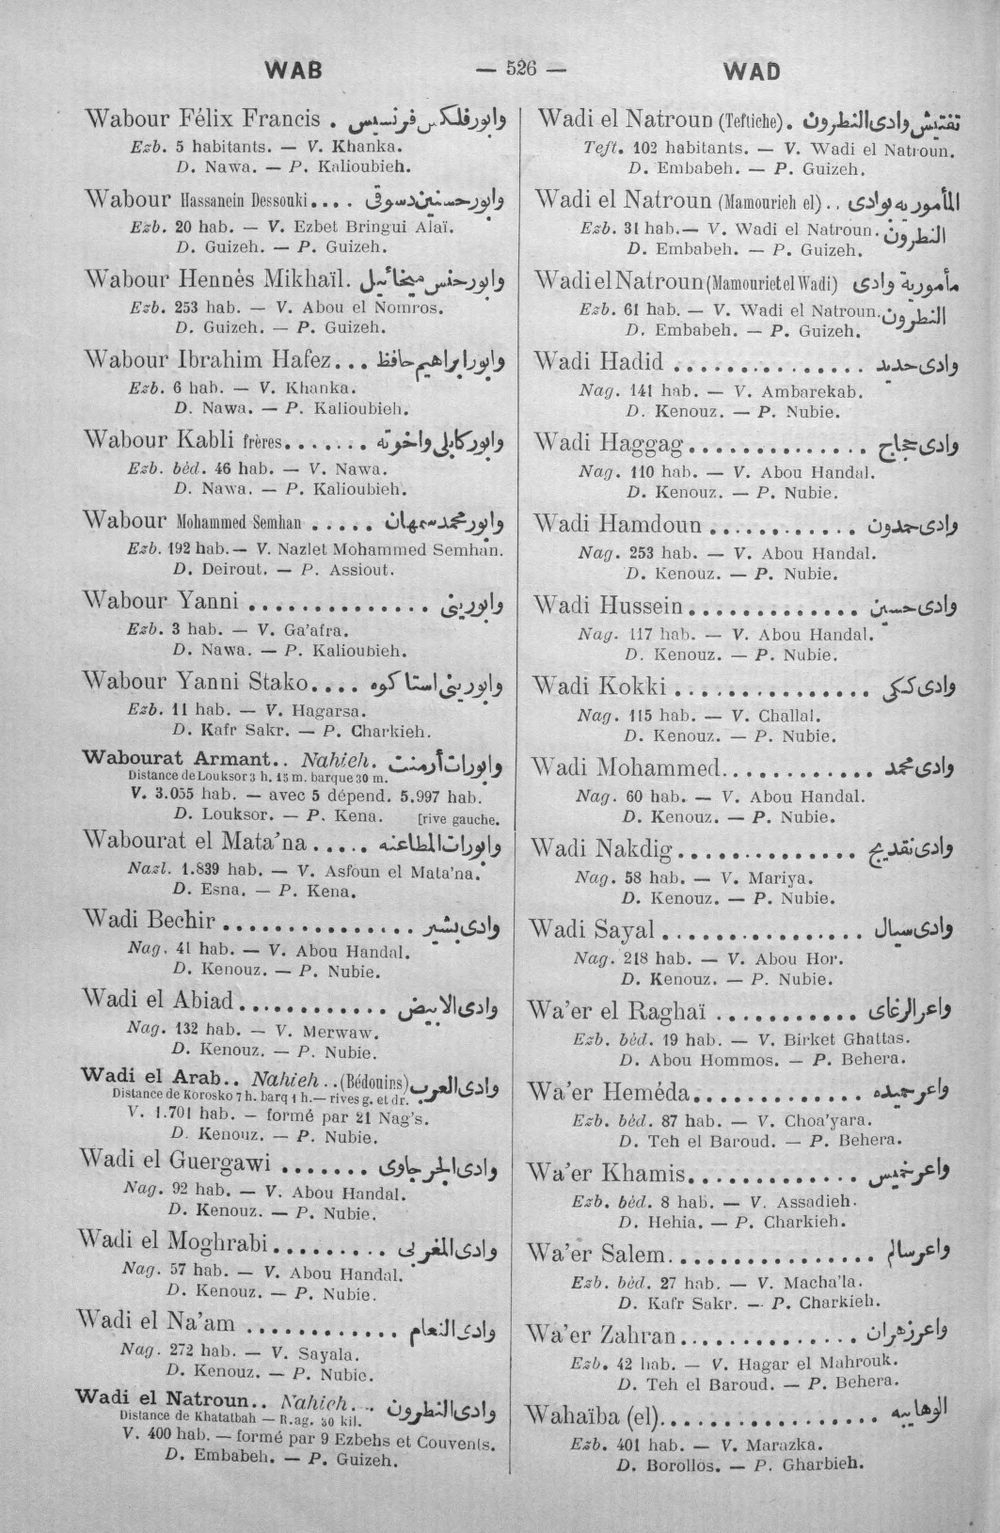 WAB — 526 — WAD
Wabour Félix Francis . وابور فلكس فرنسيس
Ezb. 5 habitants. — V. Khanka.
D. Nawa. — P. Kalioubieh.
Wabour Hassanein Dessouki.... وابور حسنين دسوقى
Ezb. 20 hab. — V. Ezbet Bringui Alaï.
D. Guizeh. — P. Guizeh.
Wabour Hennès Mikhaïl. وابور حنس ميخائيل
Ezb. 253 hab. — V. Abou el Nomros.
D. Guizeh. — P. Guizeh.
Wabour Ibrahim Hafez... وابور ابراهيم حافظ
Ezb. 6 hab. — V. Khanka.
D. Nawa. — P. Kalioubieh.
Wabour Kabli frères....... وابور كابلى واخوته
Ezb. bèd. 46 hab. — V. Nawa.
D. Nawa. — P. Kalioubieh.
Wabour Mohammed Semhan ..... وابور محمد سمهان
Ezb. 192 hab. — V. Nazlet Mohammed Semhan.
D. Deirout. — P. Assiout.
Wabour Yanni .............. وابور ينى
Ezb. 3 hab. — V. Ga'afra.
D. Nawa. — P. Kalioubieh.
Wabour Yanni Stako.... وابور ينى استاكوه
Ezb. 11 hab. — V. Hagarsa.
D. Kafr Sakr. — P. Charkieh.
Wabourat Armant.. Nahieh. وابورات أرمنت
Distance de Louksor 3 h. 15 m. barque 30 m.
V. 3.055 hab. — avec 5 dépend. 5.997 hab.
D. Louksor. — P. Kena. [rive gauche.
Wabourat el Mata'na ..... وابورات المطاعنه
Nazl. 1.839 hab. — V. Asfoun el Mata'na.
D. Esna. — P. Kena.
Wadi Bechir ............... وادى بشير
Nag. 41 hab. — V. Abou Handal.
D. Kenouz. — P. Nubie.
Wadi el Abiad ............ وادى الابيض
Nag. 132 hab. — V. Merwaw.
D. Kenouz. — P. Nubie.
Wadi el Arab.. Nahieh ..(Bédouins) وادى العرب
Distance de Korosko 7 h. barq 1 h.— rives g. et dr.
V. 1.701 hab. — formé par 21 Nag's.
D. Kenouz. — P. Nubie.
Wadi el Guergawi ....... وادى الجرجاوى
Nag. 92 hab. — V. Abou Handal.
D. Kenouz. — P. Nubie.
Wadi el Moghrabi......... وادى المغربى
Nag. 57 hab. — V. Abou Handal.
D. Kenouz. — P. Nubie.
Wadi el Na'am ............ وادى النعام
Nag. 272 hab. — V. Sayala.
D. Kenouz. — P. Nubie.
Wadi el Natroun.. Nahieh... وادى النطرون
Distance de Khatatbah — R.ag. 30 kil.
V. 400 hab. — formé par 9 Ezbehs et Couvents.
D. Embabeh. — P. Guizeh.
Wadi el Natroun (Teftiche). تفتيش وادى النطرون
Teft. 102 habitants. — V. Wadi el Natroun.
D. Embabeh. — P. Guizeh.
Wadi el Natroun (Mamourieh el).. المأموريه بوادى
Ezb. 31 hab.— V. Wadi el Natroun. النطرون
D. Embabeh. — P. Guizeh.
Wadi el Natroun (Mamouriet el Wadi) مأمورية وادى
Ezb. 61 hab. — V. Wadi el Natroun. النطرون
D. Embabeh. — P. Guizeh.
Wadi Hadid ............... وادى حديد
Nag. 141 hab. — V. Ambarekab.
D. Kenouz. — P. Nubie.
Wadi Haggag.............. وادى حجاج
Nag. 110 hab. — V. Abou Handal.
D. Kenouz. — P. Nubie.
Wadi Hamdoun ............ وادى حمدون
Nag. 253 hab. — V. Abou Handal.
D. Kenouz. — P. Nubie.
Wadi Hussein............. وادى حسين
Nag. 117 hab. — V. Abou Handal.
D. Kenouz. — P. Nubie.
Wadi Kokki ............... وادى ككى
Nag. 115 hab. — V. Challal.
D. Kenouz. — P. Nubie.
Wadi Mohammed............ وادى محمد
Nag. 60 hab. — V. Abou Handal.
D. Kenouz. — P. Nubie.
Wadi Nakdig.............. وادى نقديج
Nag. 58 hab. — V. Mariya.
D. Kenouz. — P. Nubie.
Wadi Sayal ................ وادى سيال
Nag. 218 hab. — V. Abou Hor.
D. Kenouz. — P. Nubie.
Wa'er el Raghaï ........... واعر الرغاى
Ezb. bèd. 19 hab. — V. Birket Ghattas.
D. Abou Hommos. — P. Behera.
Wa'er Heméda............. واعر حميده
Ezb. bèd. 87 hab. — V. Choa'yara.
D. Teh el Baroud. — P. Behera.
Wa'er Khamis............. واعر خميس
Ezb. bèd. 8 hab. — V. Assadieh.
D. Hehia. — P. Charkieh.
Wa'er Salem................ واعر سالم
Ezb. bèd. 27 hab. — V. Macha'la.
D. Kafr Sakr. — P. Charkieh.
Wa'er Zahran.............. واعر زهران
Ezb. 42 hab. — V. Hagar el Mahrouk.
D. Teh el Baroud. — P. Behera.
Wahaïba (el)................ الوهايبه
Ezb. 401 hab. — V. Marazka.
D. Borollos. — P. Gharbieh.